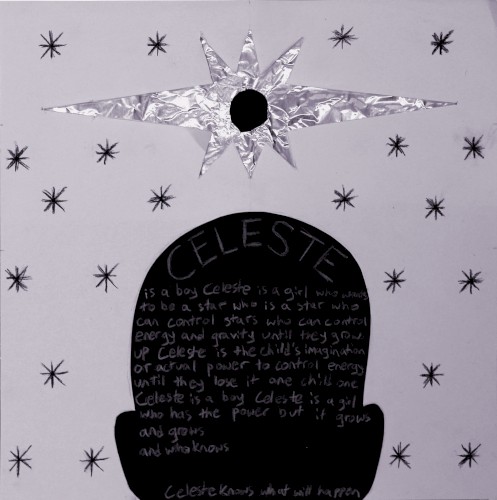 CELESTE
is a boy Celeste is a girl who wants
to be a star who is a star who
can control stars who can control
energy and gravity until they grow
up Celeste is the child's imagination
or actual power to control energy
until they lose it one child one
Celeste is a boy Celeste is a girl
who has the power but it grows
and grows
and who knows
Celeste knows what will happen